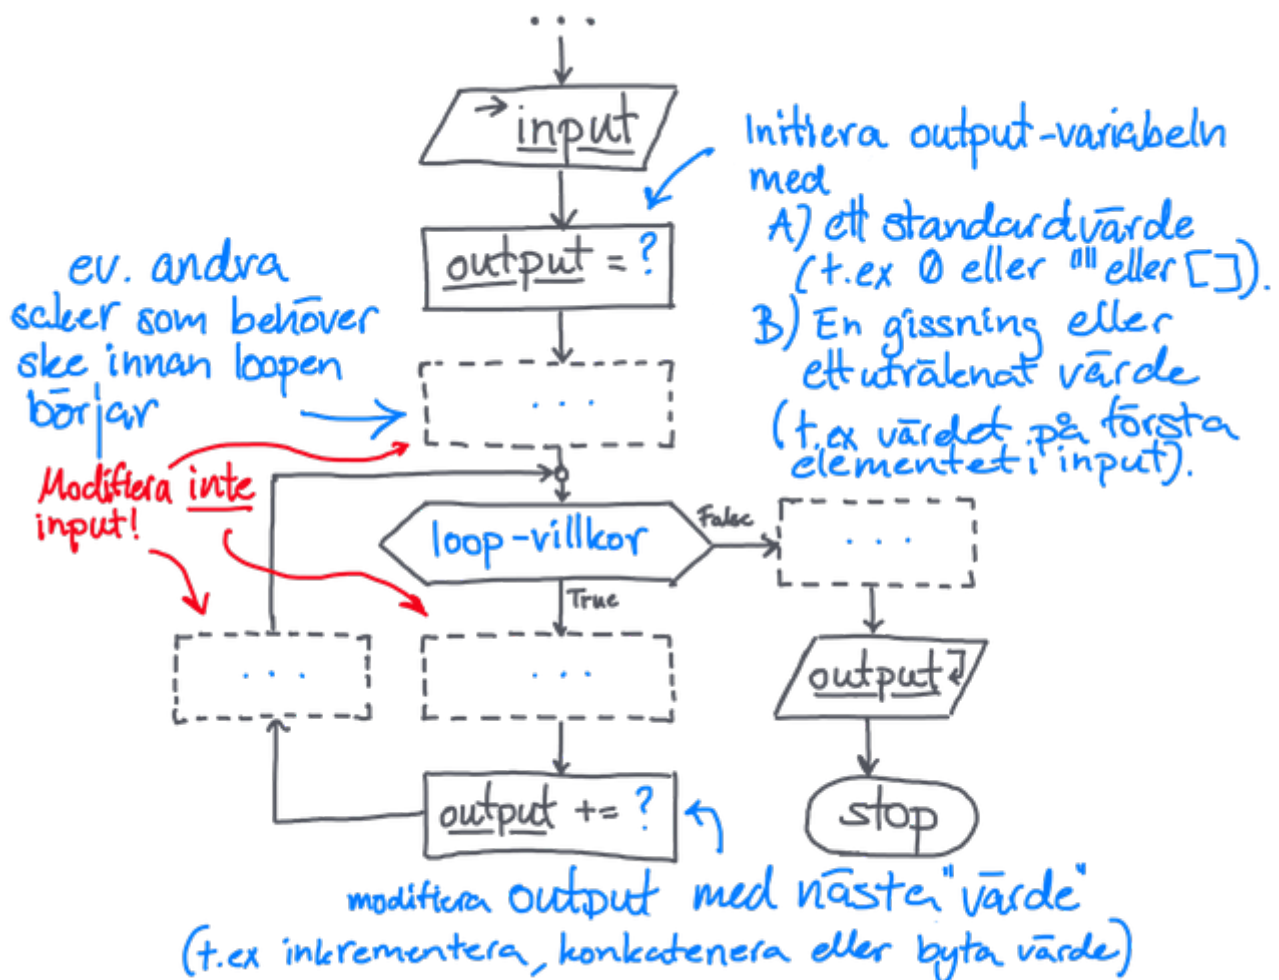 ...
→ input
Initiera output-variabeln
med
A) ett standardvärde
(t.ex 0 eller "" eller []).
B) En gissning eller
ett uträknat värde
(t.ex värdet på första
elementet i input).
output = ?
ev. andra
saker som behöver
ske innan loopen
börjar
...
Modifiera inte
input!
loop-villkor
False
...
True
...
...
output
stop
output += ?
modifiera output med nästa "värde"
(t.ex inkrementera, konkatenera eller byta värde)